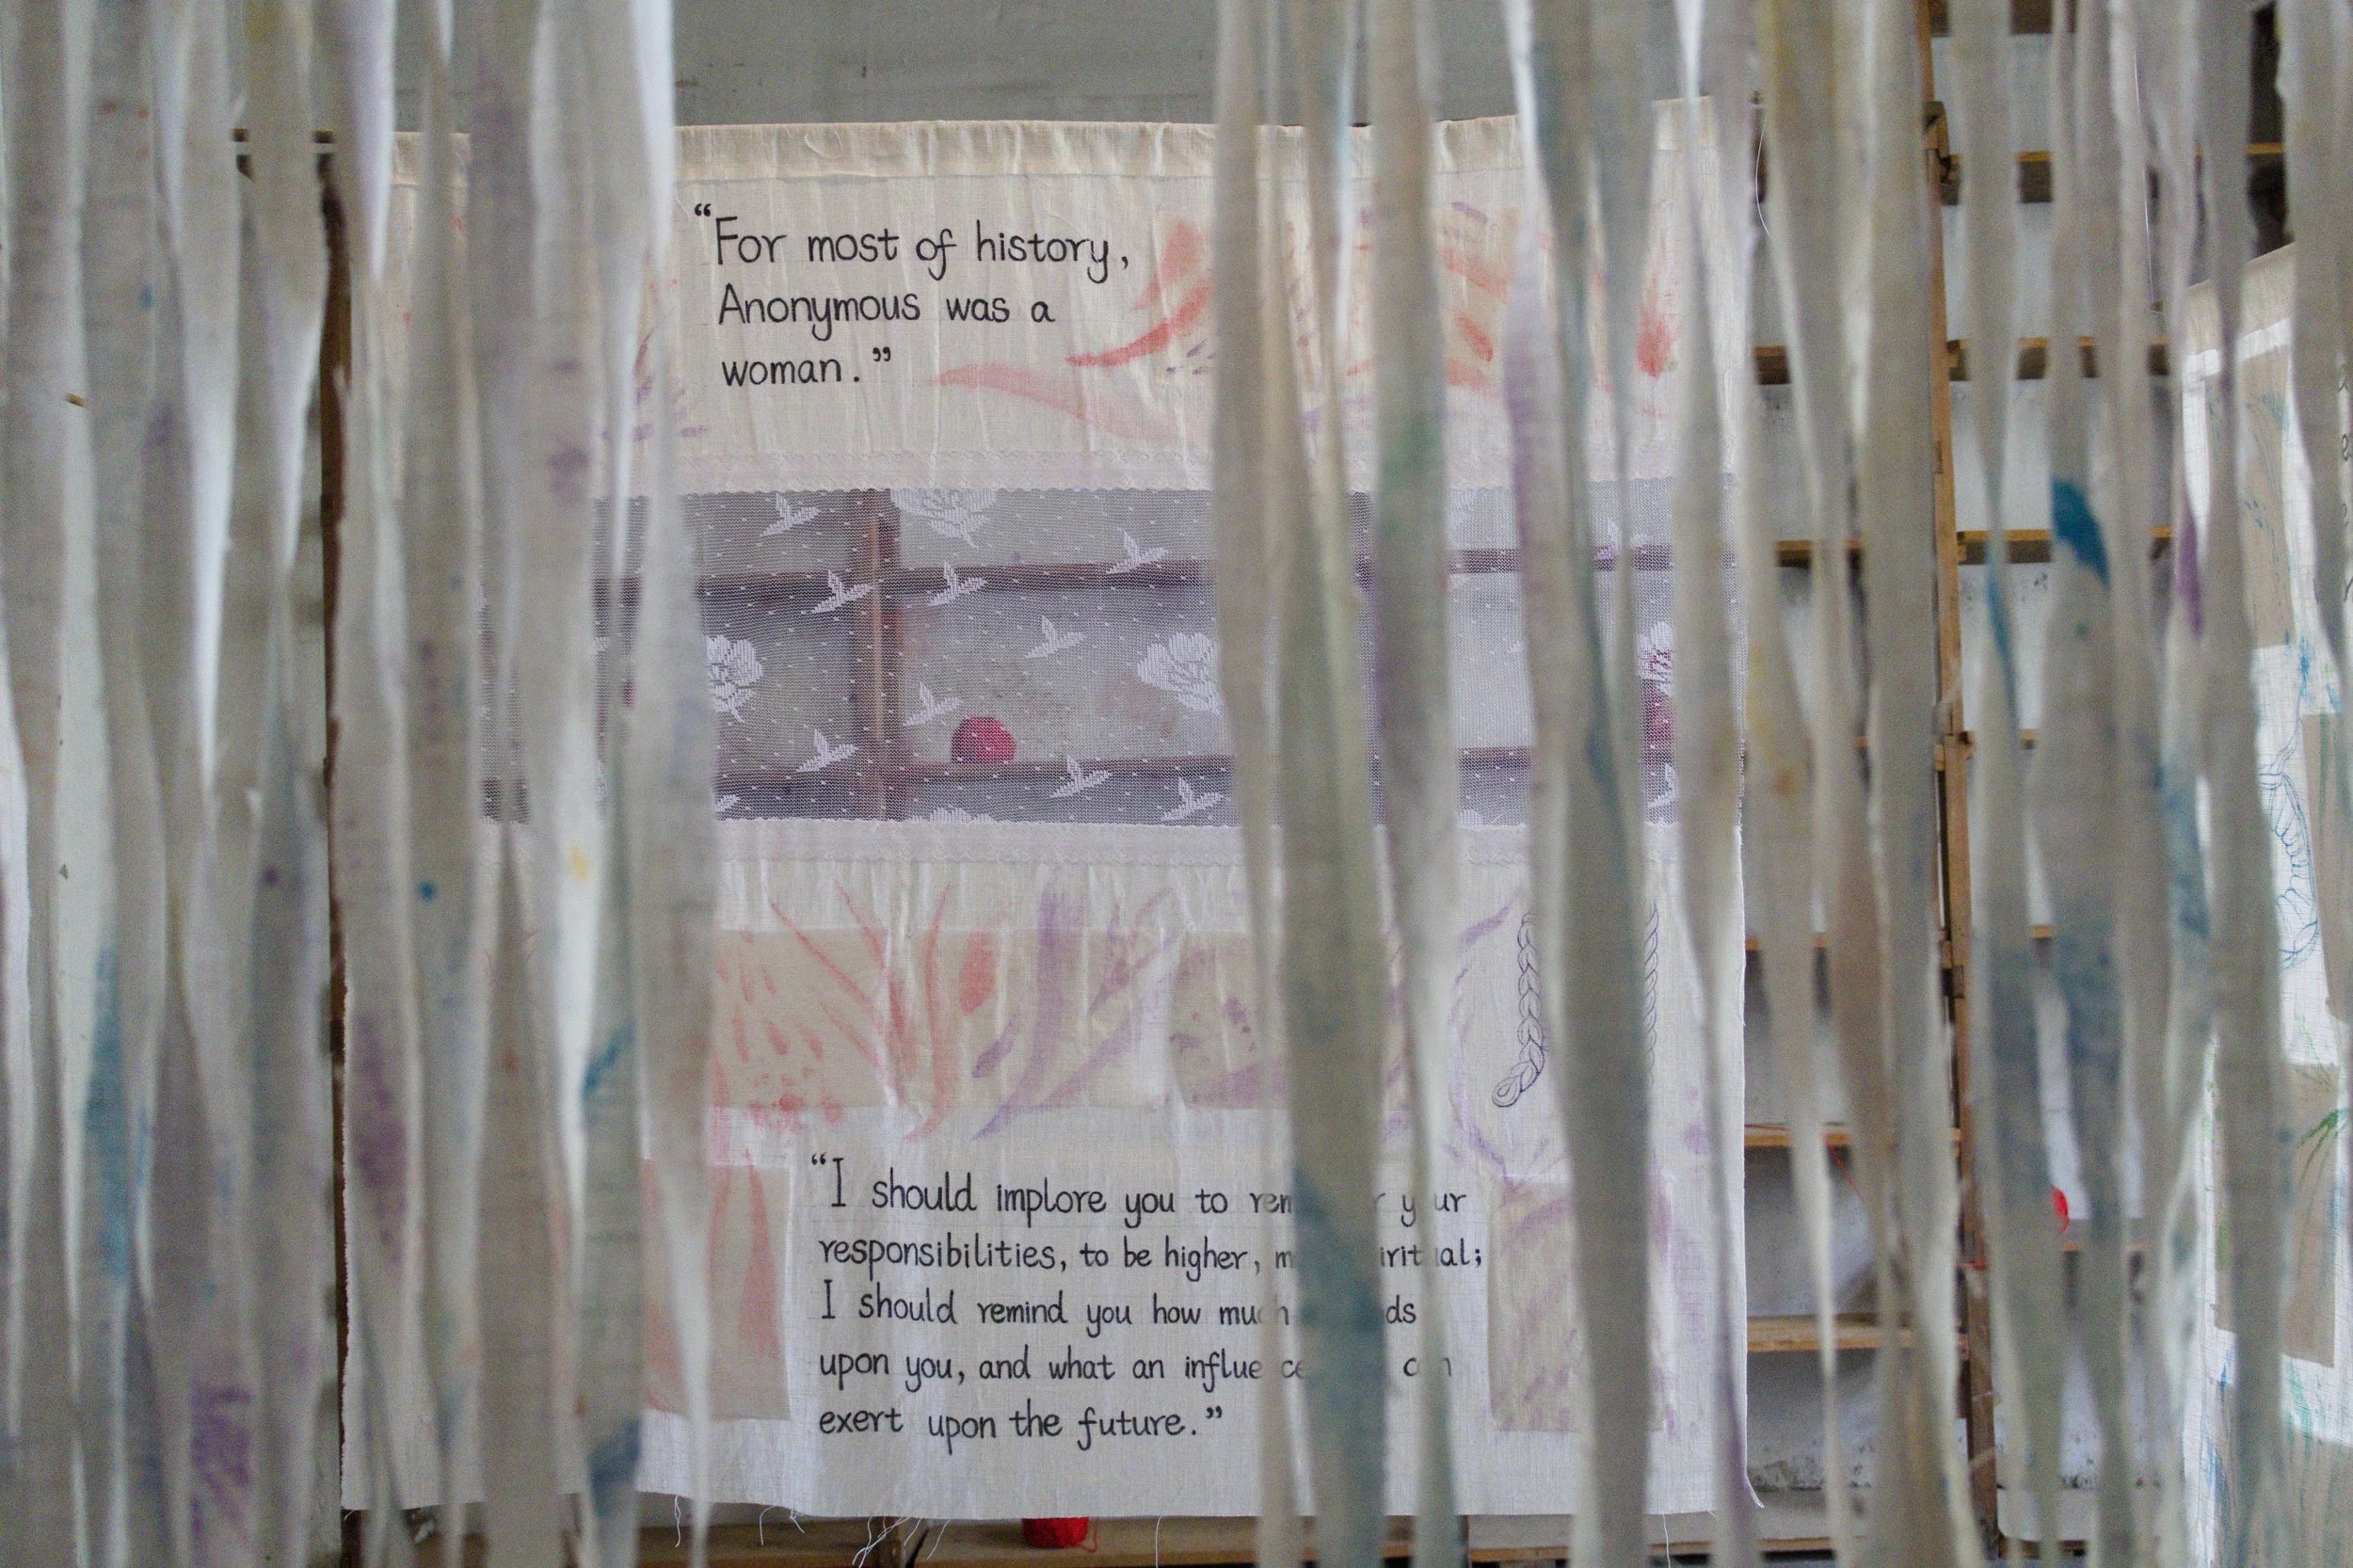 “For most of history,
Anonymous was a
woman.”
“I should implore you to your
responsibilities, to be higher,
I should remind you how much
upon you, and what an influence can
exert upon the future.”